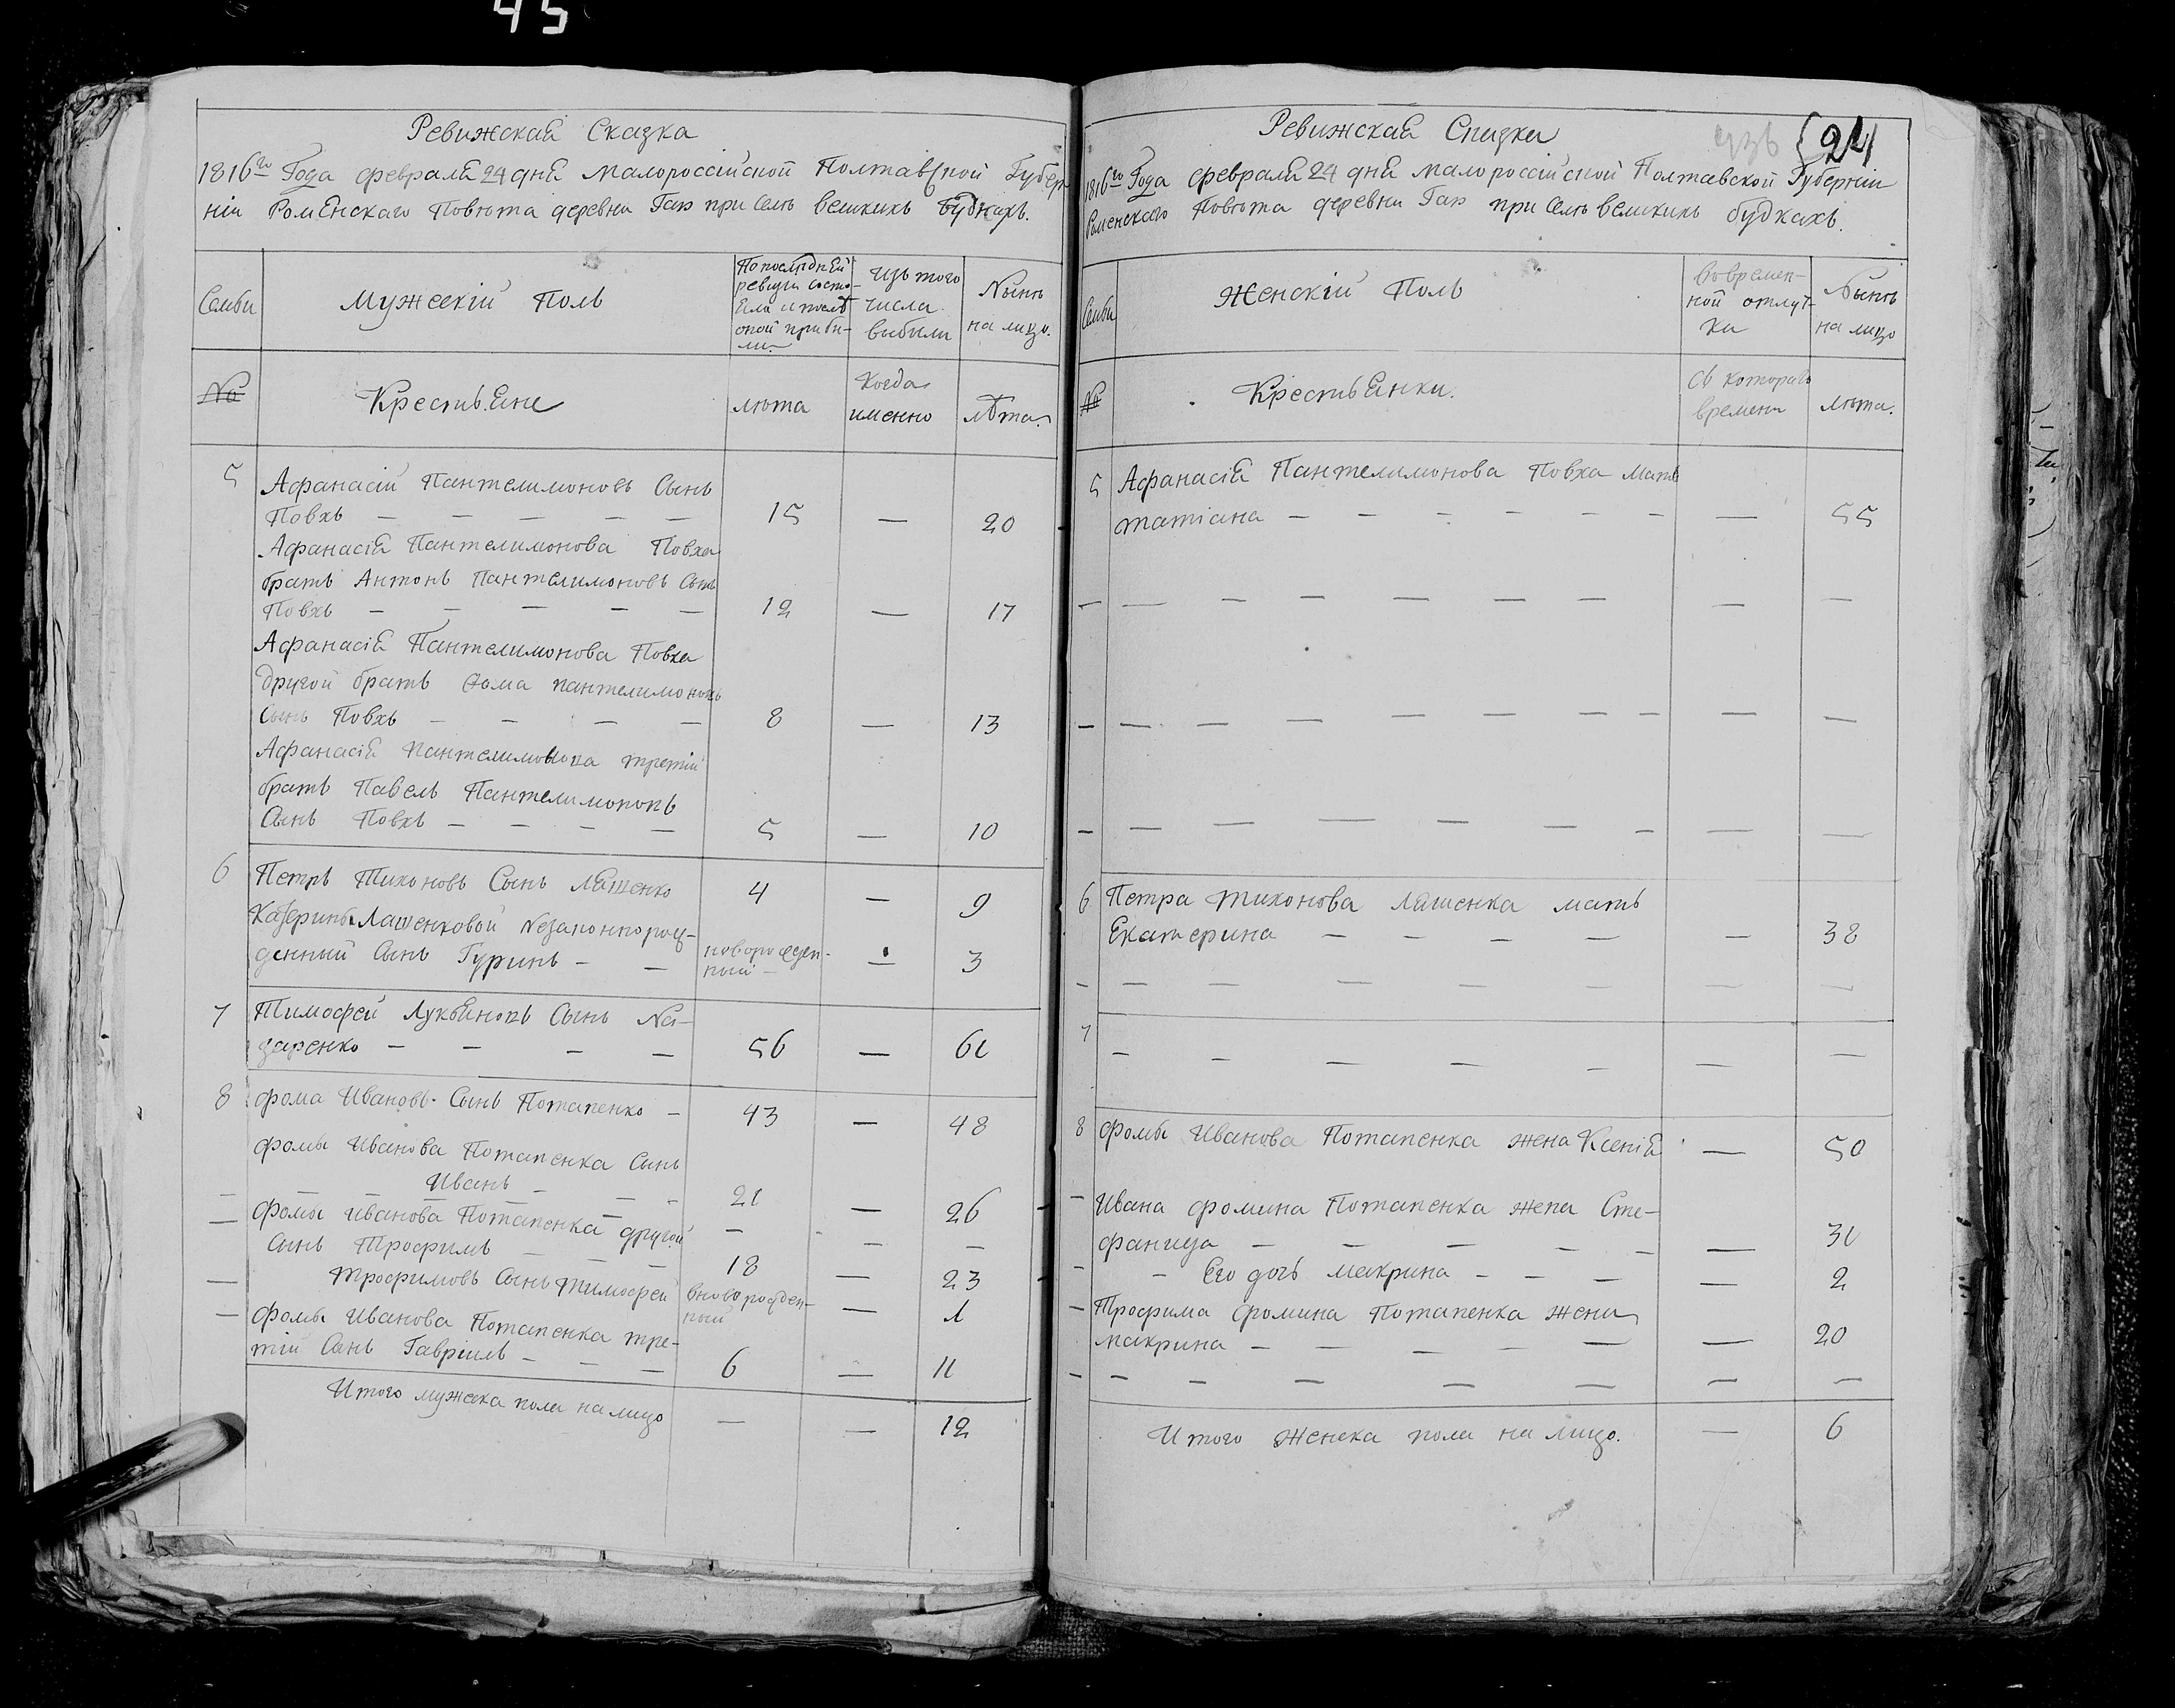 45
Ревижская Сказка
1816го Года февраля 24 дня малороссійской Полтавской Губер
ніи Роменскаго Повѣта деревни Гая при Селѣ великихъ Будкахъ.
Семьи
Мужескій Полъ
По последней
ревизіи состо-
яло и послѣ
оной прибы-
ли
изъ того
числа
выбыли
Nынѣ
на лицо.
No
Крестьяне
лѣта
Когда
именно
лѣта
5
Афанасій Пантелимоновъ Сынъ
Повхъ — — — — —
15 — 20
Афанасія Пантелимонова Повха
братъ Антонъ Пантелимоновъ Сынъ
Повхъ — — — — —
12 — 17
Афанасія Пантелимонова Повха
другой братъ Фома пантелимоновъ
Сынъ Повхъ — — — —
8 — 13
Афанасія Пантелимонова третій
братъ Павелъ Пантелимоновъ
Сынъ Повхъ — — — —
5 — 10
6
Петръ Тихоновъ Сынъ Ляшенко
4 — 9
Катерины Ляшенковой Nезаконнорож-
денный Сынъ Гуринъ — —
новорожден-
ный —
— 3
7
Тимофей Лукьяновъ Сынъ На-
заренко — — — —
56 — 61
8
фома Ивановъ Сынъ Потапенко —
43 — 48
фомы Иванова Потапенка Сынъ
— — — Иванъ — — —
21 — 26
— фомы Иванова Потапенка другой
— — —
Сынъ Трофимъ — — —
18 — 23
— Трофимовъ Сынъ Тимофей
вноворожден-
ный
— 1
— фомы Иванова Потапенка тре-
тій Сынъ Гавріилъ — — —
6 — 11
Итого мужеска пола на лицо
— — 12
Ревижская Сказка
24
1816го Года февраля 24 дня малороссійской Полтавской Губерніи
Роменскаго Повѣта деревни Гая при Селѣ великихъ будкахъ.
Семьи
Женскій Полъ
Во времен-
ной отлуч-
ки
Nынѣ
на лицо
No
Крестьянки.
Съ котораго
времени
лѣта.
5
Афанасія Пантелимонова Повха мать
татіана — — — — — —
— 55
— — — — — — — — —
— — — — — — — — — —
— — — — — — — — —
6
Петра тихонова Ляшенка мать
Екатерина — — — —
— 38
— — — — — — — —
7
— — — — — — —
8
фомы Иванова Потапенка жена Ксенія
— 50
— Ивана фомина Потапенка жена Сте-
фанида — — — — —
— 31
— — Его дочь макрина — — —
— 2
— Трофима фомина Потапенка жена
макрина — — — — —
— 20
— — — — — — — —
Итого Женска пола на лицо.
— 6